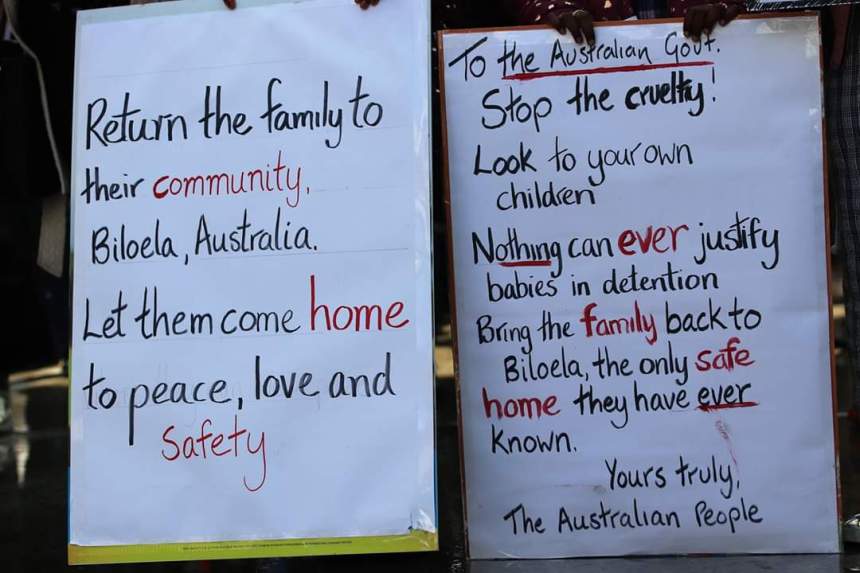 Return the family to
their community,
Biloela, Australia.
Let them come home
to peace, love and
safety
To the Australian Govt.
Stop the cruelty!
Look to your own
children
Nothing can ever justify
babies in detention
Bring the family back to
Biloela, the only safe
home they have ever
known.
Yours truly,
The Australian People